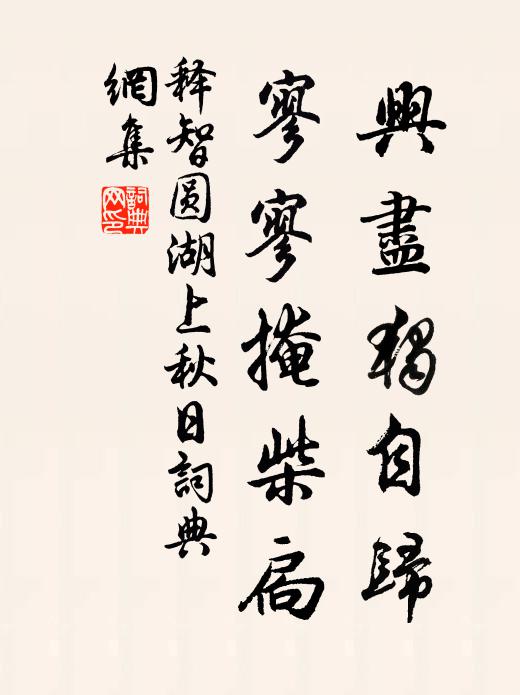 興盡獨自歸
寥寥掩柴扃
释智圆湖上秋日詞典
網集
詞典
网印